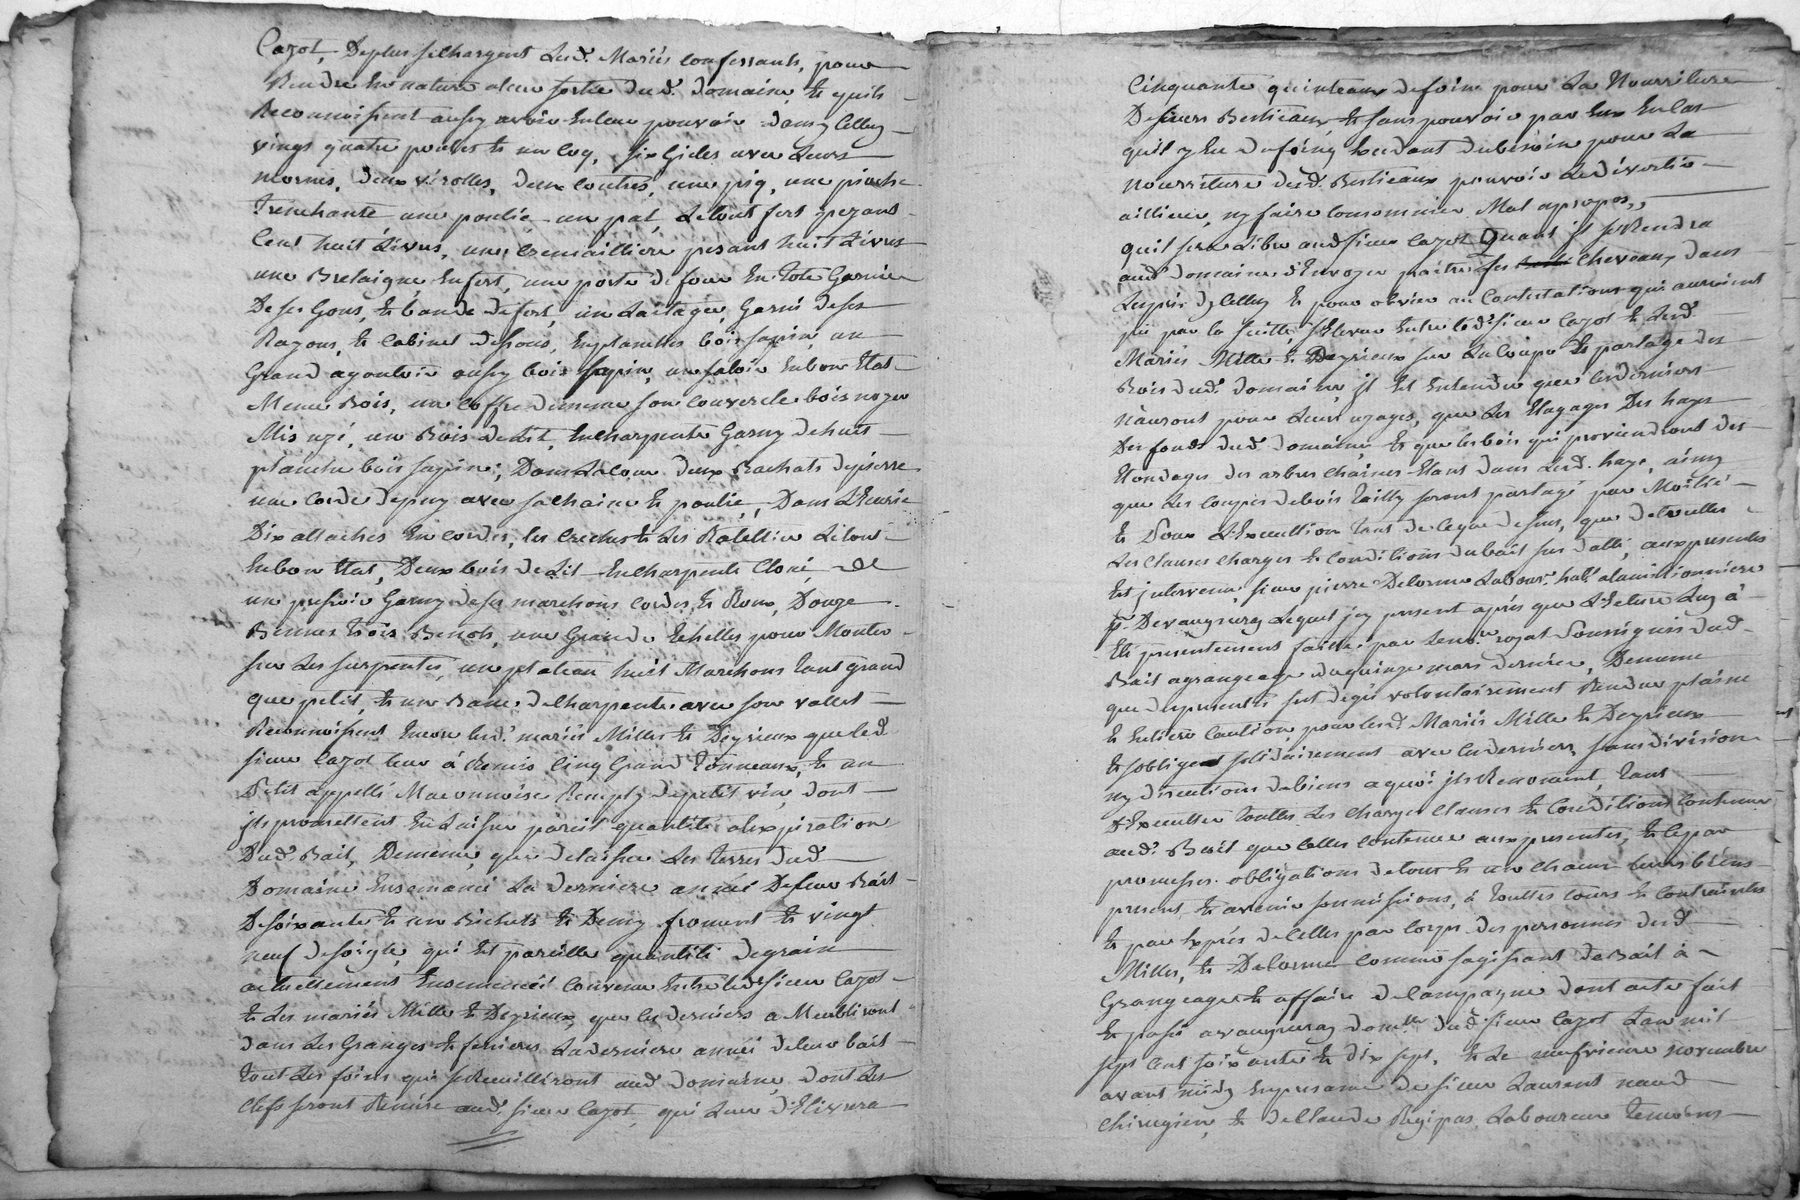 Cazot, Deplus se chargent Lesd. Mariés confessants, pour
Rendre En nature aleur sortie dud. domaine, & quils
Reconnoissent aussy avoir Enleur pouvoir dans Icelluy
vingt quatre poules & un coq, six Gides avec Leurs
mornes, deux virolles, deux coutres, une pig, une pioche
Trenchante une poulie un pal, Letout fert pezant
Cent huit Livres, une Cremailliere pesant huit Livres
une Bretaigne En fert, une porte de four En tote Garnie
De ses Gons, & bande de fert, un Laitager, Garni de ses
Rayons, & Cabinet dessous, En planches bois sapin, un
Grand agoutoir aussy bois sapin, un saloir En bon Etat
Meme Bois, un Coffre dememe son couvercle bois noyer
My uzé, un Bois de Lit Encharpente Garny de huit
planches bois sapin; Dans La Cour deux Bachats de pierre
une Corde de puy avec sa chaine & poulie, Dans L'Ecurie
Dix attaches En cordes, les Creches & Les Ratellier Le tout
En bon Etat, Deux bois de Lit Encharpente Cloué, de
un pressoir Garny de ses marchons cordes, & Roue, Douze
Bennes trois Benots, une Grande Echelles pour Monter
sur Les serpentes, un plateau huit Marchons tant grand
que petit, & un Banc de charpente avec son vallet
Reconnoissent Encore lesd. mariés Millet & Deyrieux queled
sieur Cazot leur à Remis Cinq Grand Tonneaux, & un
Petit appellé Maconnoise Remply de petit vin, dont
ils promettent En Laisser pareil quantité alexpiration
Dud. Bail, Dememe que delaisser Les terres dud
Domaine Ensemancé La derniere année Deleur Bail
De soixante & un Bichets & Demy froment & vingt
neuf de seigle, qui Est pareille quantité de grain
actuellement Ensemencé Convenu Entre led. sieur Cazot
& Les mariés Mille & Deyrieux, que les derniers a Meubliront
dans Les Granges & feniers La derniere année de leur bail
tout Les foins qui se Recuilliront aud. domaine, dont Les
Clefs seront Remise aud. sieur Cazot, qui Leur d'Elivrera
Cinquante quinteaux de foins pour La Nourriture
De leurs Bestieaux, & sans pouvoir par Eux En Cas
quil y Eu du foing Excedant du besoin pour La
nourriture desd. Bestieaux pouvoir Le divertir
aillieur, ny faire Consommer Mal apropos,
quil sera Libre aud. sieur Cazot Quant il se Rendra
aud. domaine d'Envoyer paitre ses Cheveaux dans
Les prés dy Celluy & pour obvier au Contestations qui auroient
pu par la suitte s'Elever Entre led. sieur Cazot & Lesd
Mariés Mille & Deyrieux sur La Coupe & partage des
Bois dud. domaine, il Est Entendu que les derniers
n'auront pour Leurs uzages, que Les Elagages Des hayes
Des fonds dud. Domaine, & que les bois qui proviendront des
Etondages des arbres Chaines Etant dans Lesd. haye, ainsy
que Les Coupes debois tailly seront partagé par Moitié
& Pour L'Execution tant de Ceque dessus, que detouttes
Les Clauses charges & Conditions du bail sus datté, aux presentes
Est intervenu, sieur pierre Delorme Labour. hab. alamissionniere
p. Devaugneray Lequel icy present après que L'Ecture Luy à
Eté presentement faitte par Le no.re royal Soussigné dud.
Bail agrangeage duquinze mars dernier, Dememe
que des presentes s'est degré volontairement Rendue plaine
& Entiere Caution pour lesd. Mariés Mille & Deyrieux
& soblige solidairement avec les derniers, sans division
ny discutions debiens aquoi ils Renoncent, tant
d'Executter touttes Les charges Clauses & Conditions Contenue
aud. Bail que Celles Contenue aux presentes, & ce par
promesses obligations detout & un chacun leurs biens
present & avenir soumissions, à touttes cours & Contraintes
& par Exprès de Celles par Corps des personnes desd
Milles, & Delorme comme sagissant de Bail à
Grangeage & affaire de Campagne dont acte fait
& passé avaugneray dom.lle dud. sieur Cazot Lan mil
sept cent soixante & dix sept, & Le neufvieme novembre
avant midy Enpresance de sieur Laurent naud
Chirugien, & de Claude Regipas Laboureur temoins